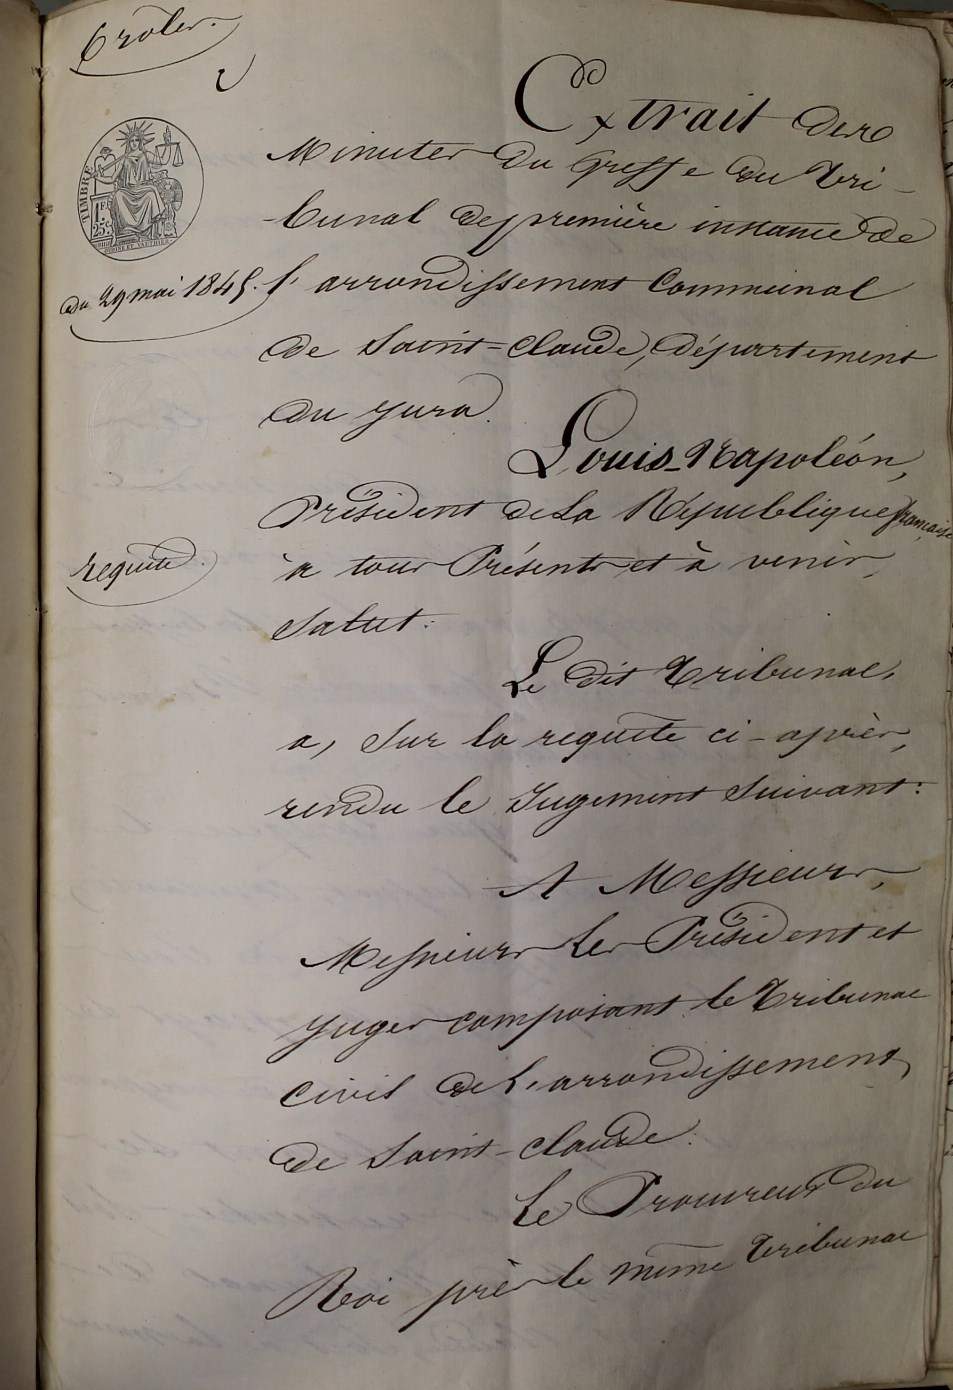 6 rôles.
Extrait des
Minutes du Greffe du Tri-
bunal de première instance de
TIMBRE
1 FR
25 C
du 29 mai 1845.
l'arrondissement Communal
de Saint-Claude, département
du Jura.
Louis-Napoléon,
Président de la République française
à tous Présents et à venir,
Salut:
requête.
Le dit Tribunal,
a, sur la requête ci-après,
rendu le Jugement suivant:
A Messieurs,
Messieurs les Président et
Juges composant le Tribunal
civil de l'arrondissement
de Saint-Claude.
Le Procureur du
Roi près le même tribunal